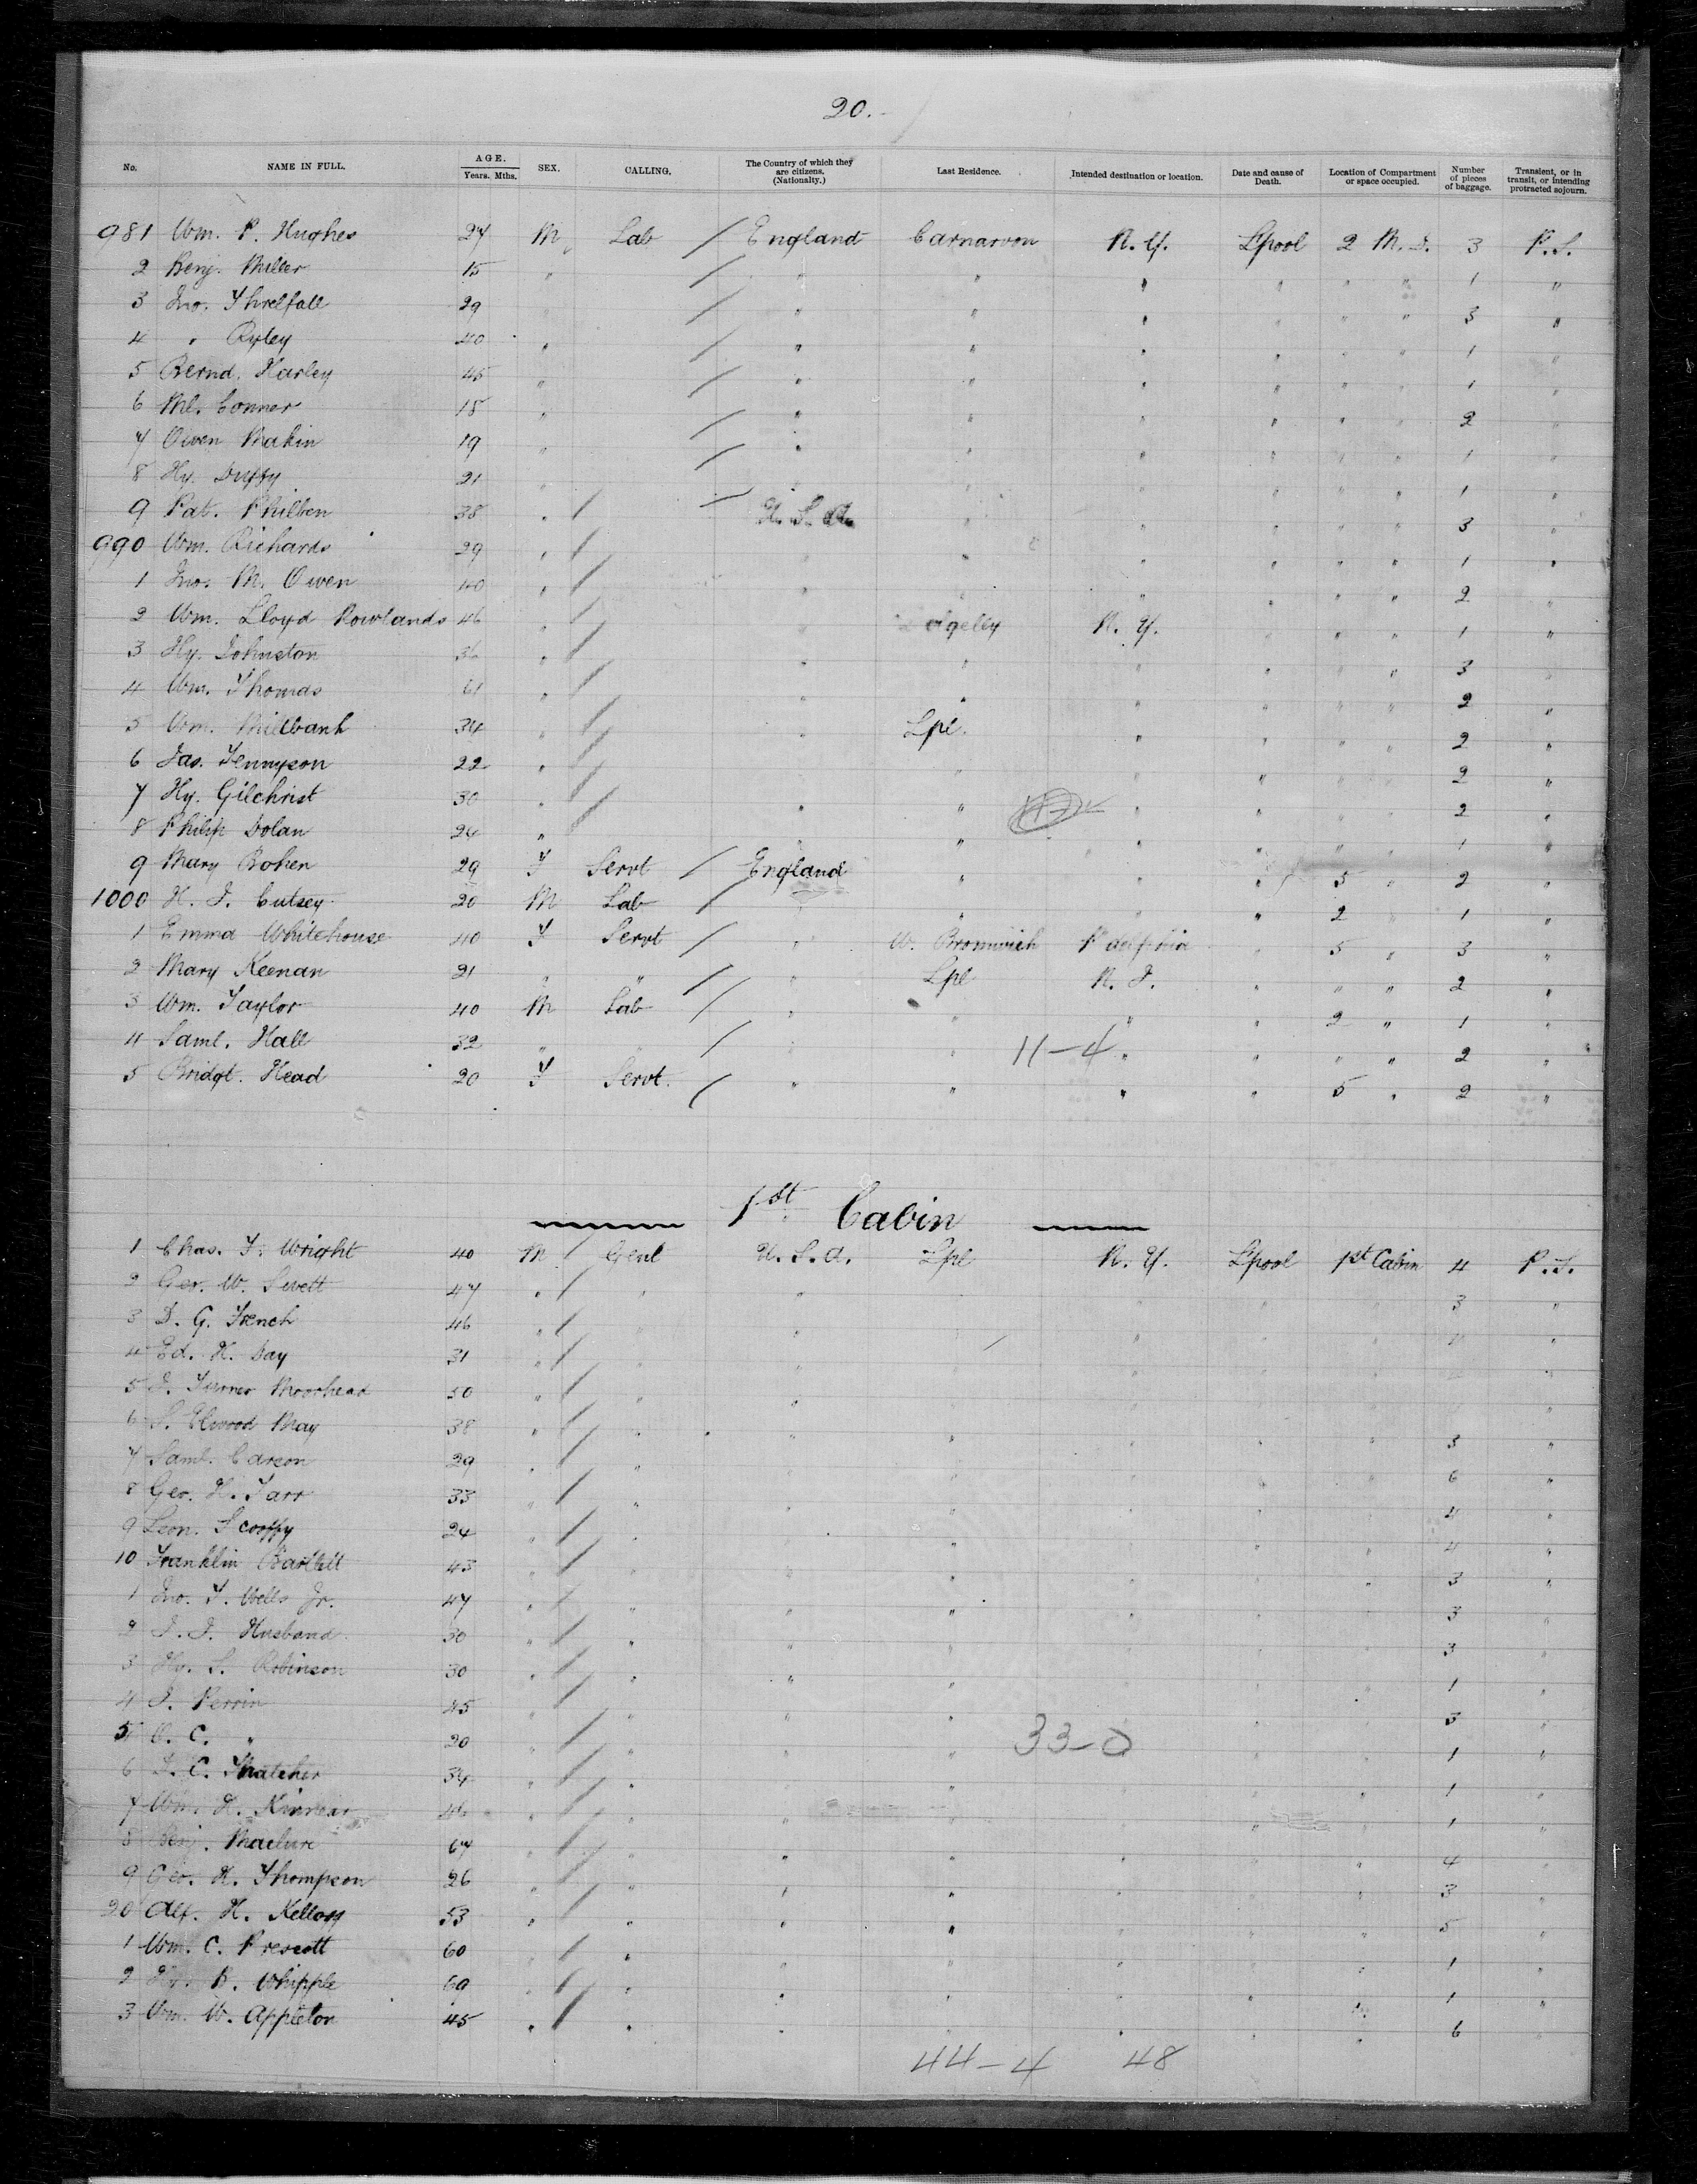 20.
No. NAME IN FULL. AGE. Years. Mths. SEX. CALLING. The Country of which they are citizens. (Nationalty.) Last Residence. Intended destination or location. Date and cause of Death. Location of Compartment or space occupied. Number of pieces of baggage. Transient, or in transit, or intending protracted sojourn.
981 Wm. P. Hughes 27 M Lab / England Carnarvon N. Y. Lpool 2 M. D. 3 P. S.
2 Benj. Miller 15 " / " " " " " " 1 "
3 Jno. Threlfall 29 " / " " " " " " 3 "
4 " Ryley 40 " / " " " " " " 1 "
5 Bernd. Harley 45 " / " " " " " " 1 "
6 Ml. Conner 18 " / " " " " " " 2 "
7 Owen Makin 19 " / " " " " " " 1 "
8 Hy. Duffy 21 " / " " " " " 1 "
9 Pat. Philben 38 " / U. S. A. " " " " " 3 "
990 Wm. Richards 29 " / " " " " " " 1 "
1 Jno. M. Owen 40 " / " " " " " " 2 "
2 Wm. Lloyd Rowlands 46 " / " N. Y. " " " 1 "
3 Hy. Johnston 36 " / " " " " " " 3 "
4 Wm. Thomas 61 " / " " " " " " 2 "
5 Wm. Millbank 34 " / " Lpl. " " " " 2 "
6 Jas. Tennyson 22 " / " " " " " " 2 "
7 Hy. Gilchrist 30 " / " " " " " " 2 "
8 Philip Dolan 24 " / " " " " " " 1 "
9 Mary Bohen 29 F Servt / England " " " 5 " 2 "
1000 H. J. Cutsey 20 M Lab / " " " " 2 " 1 "
1 Emma Whitehouse 40 F Servt / " W. Bromwich P'delphia " 5 " 3 "
2 Mary Keenan 21 " " / " Lpl N. J. " " " 2 "
3 Wm. Taylor 40 M Lab / " " " " 2 " 1 "
4 Saml. Hall 32 " " / " " 11-4 " " " " 2 "
5 Bridgt. Head 20 F Servt. / " " " " 5 " 2 "
1st Cabin
1 Chas. F. Wright 40 M / Genl U. S. A. Lpl N. Y. Lpool 1st Cabin 4 P. S.
2 Geo. W. Swett 47 " / " " " " " 3 "
3 D. G. French 46 " / " " " " " "
4 Ed. H. Day 31 " / " " " " " "
5 J. Turner Moorhead 50 " / " " " " " "
6 S. Elwood May 38 " / " " " " " " 3 "
7 Saml. Carson 29 " / " " " " " " 6 "
8 Geo. H. Tarr 33 " / " " " " " " 4 "
9 Leon. 24 " / " " " " " " 4 "
10 Franklin Bartlett 43 " / " " " " " " 3 "
1 Jno. T. Wells Jr. 47 " / " " " " " " 3 "
2 J. J. Husband 30 " / " " " " " " 3 "
3 S. Robinson 30 " / " " " " " " 1 "
4 J. Perrin 45 " / " " " " " " 3 "
5 O. C. " 20 " / " " " 33-0 " " 1 "
6 C. Thatcher 34 " / " " " " " " 1 "
7 Wm. H. Kinnear 46 " / " " " " " " 1 "
8 Benj. Maclure 67 " / " " " " " " 4 "
9 Geo. H. Thompson 26 " / " " " " " " 3 "
20 Alf. H. Kellogg 53 " / " " " " " " 5 "
1 Wm. C. Prescott 60 " / " " " " " " 1 "
2 B. Whipple 60 " / " " " " " " 1 "
3 Wm. W. Appleton 45 " / " " " " " " 6 "
44-4 48